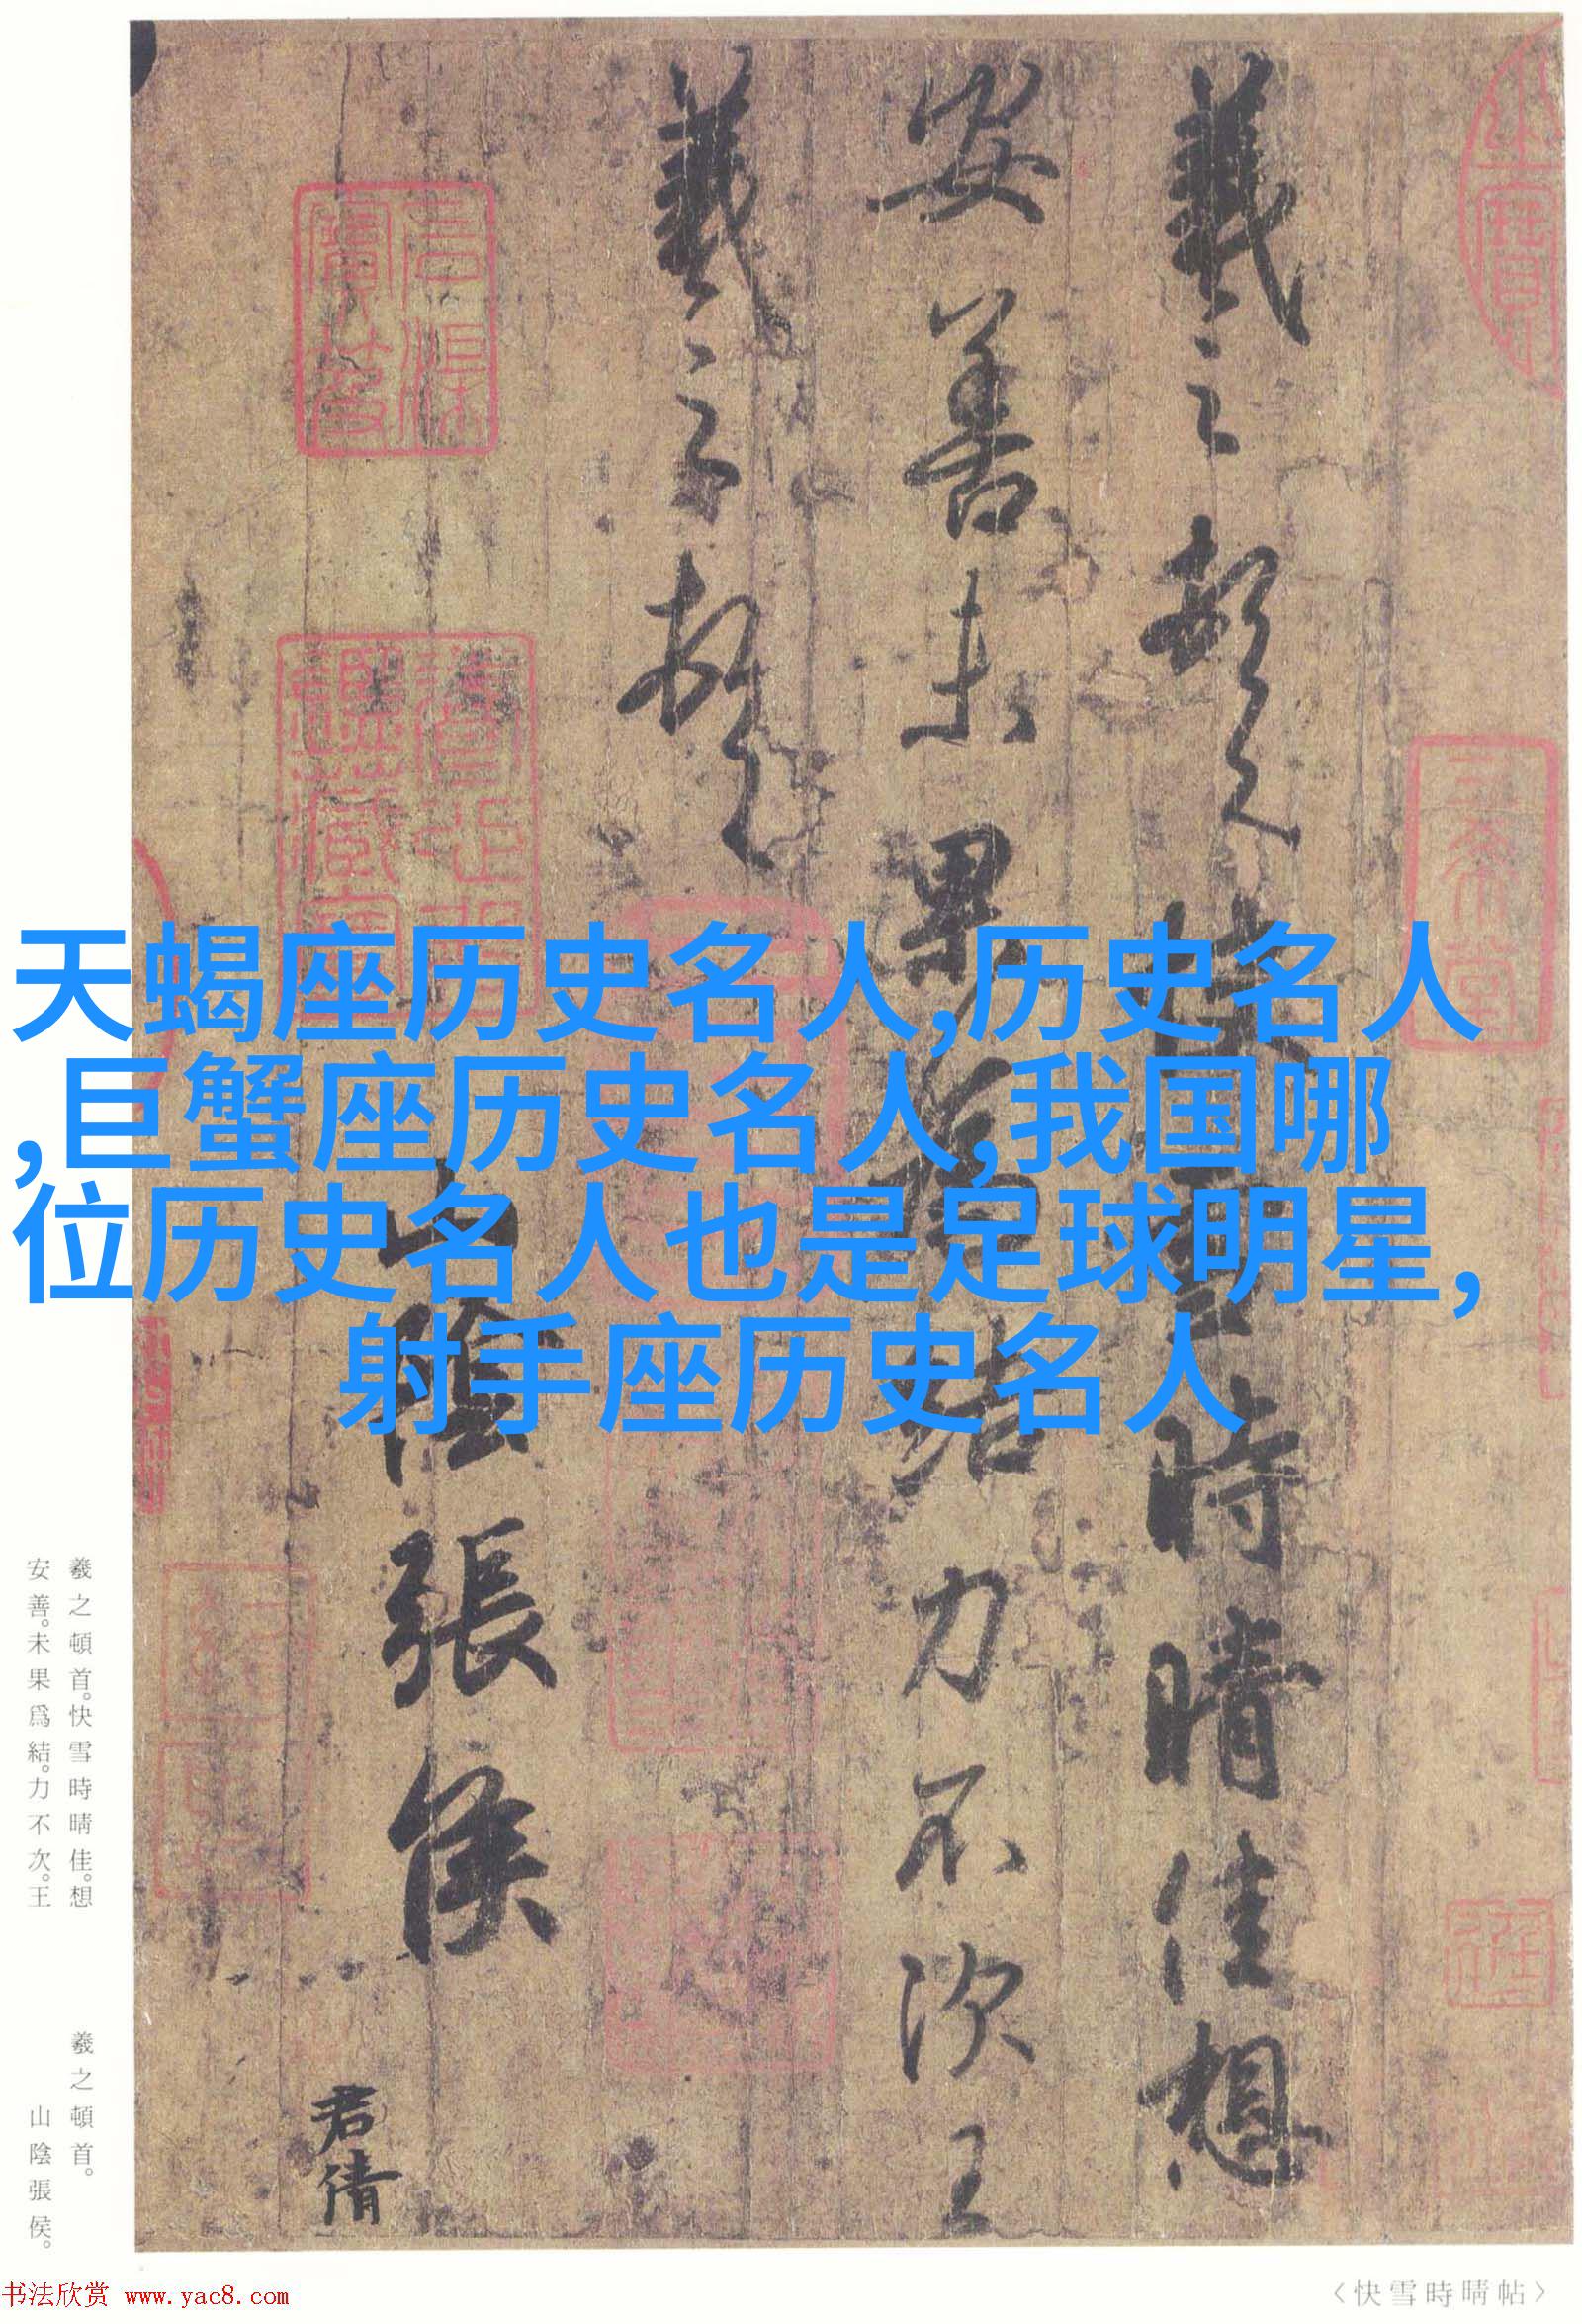 羲之頓首快雪時晴佳想
安善未果為結力不次王
羲之頓首
山陰張侯
君倩
天蝎座历史名人,历史名人
,巨蟹座历史名人,我国哪
位历史名人也是足球明星,
射手座历史名人
三希堂
羲之頓首。快雪時晴佳。想
安善。未果爲結。力不次。王
羲之頓首。
山陰張侯。
书法欣赏 www.yac8.com
〈快雪時晴帖〉